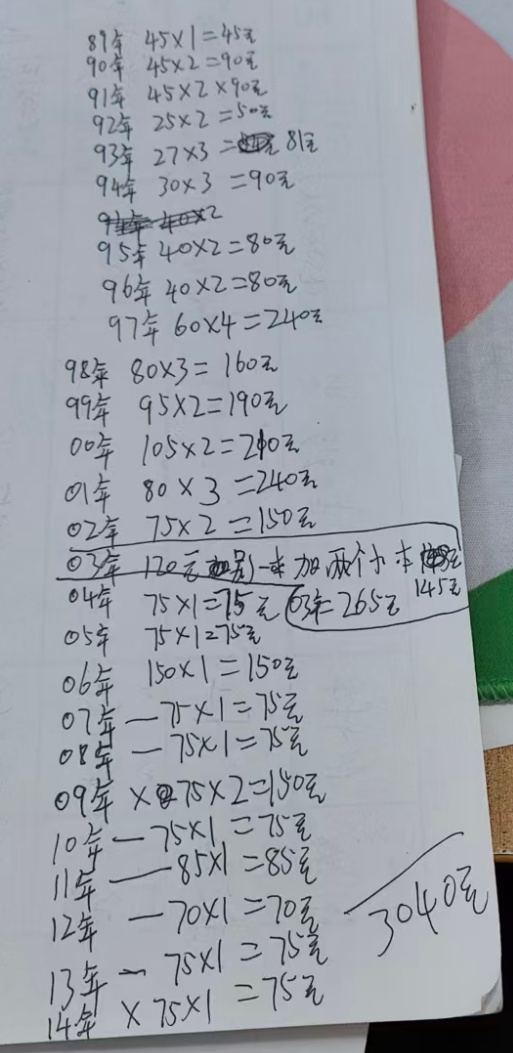 89年 45×1=45元
90年 45×2=90元
91年 45×2×90元
92年 25×2=50元
93年 27×3=81元
94年 30×3=90元
95年 40×2=80元
96年 40×2=80元
97年 60×4=240元
98年 80×3=160元
99年 95×2=190元
00年 105×2=210元
01年 80×3=240元
02年 75×2=150元
03年 120元 别一本 加两个小本 145元
04年 75×1=75元 03年=265元
05年 75×1=75元
06年 150×1=150元
07年—75×1=75元
08年—75×1=75元
09年×75×2=150元
10年—75×1=75元
11年—85×1=85元
12年—70×1=70元
3040元
13年—75×1=75元
14年×75×1=75元